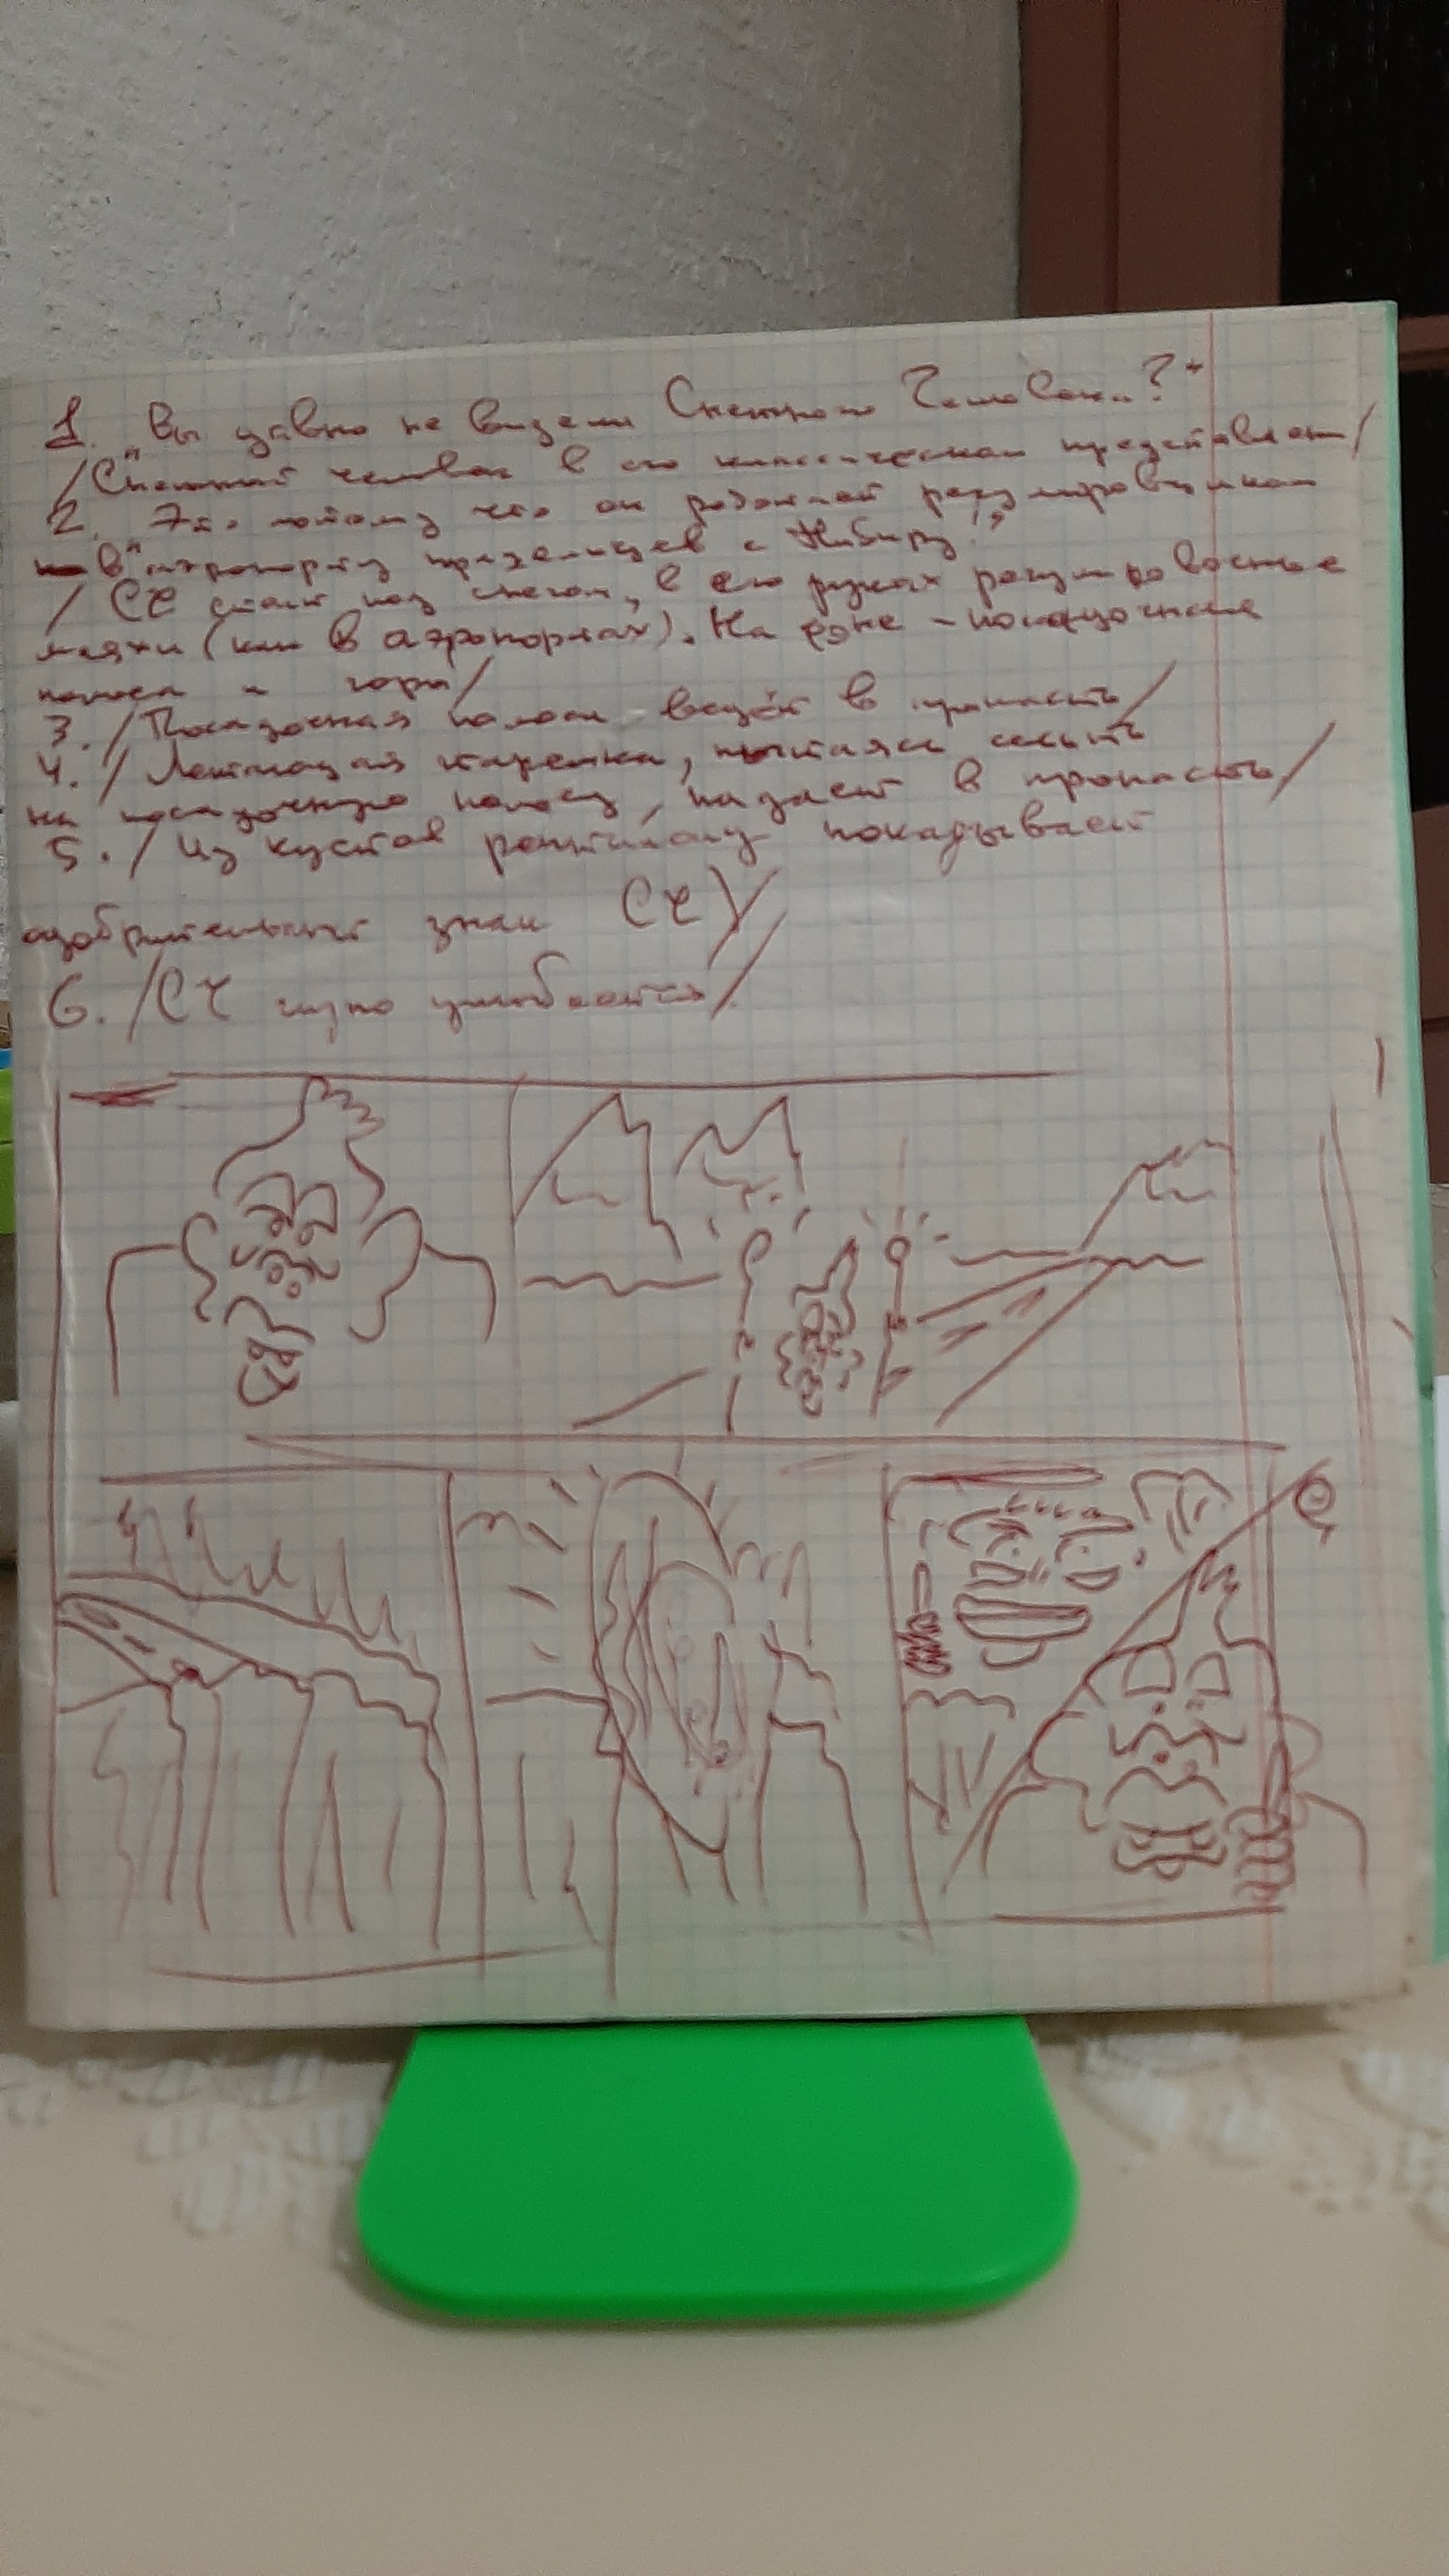 1. "Вы давно не видели Снежного Человека?"
/Снежный человек в его классическом представлении/
2. Это потому что он работает регулировщиком
в аэропорту пришельцев с Нибиру!"
/СЧ стоит под снегом, в его руках регулировочные
маяки (как в аэропортах). На фоне - посадочная
полоса и горы/
3. /Посадочная полоса ведёт в пропасть/
4. /Летающая тарелка, пытаясь сесть
на посадочную полосу, падает в пропасть/
5. /Из кустов показывает
одобрительный знак СЧ/
6. /СЧ улыбается/